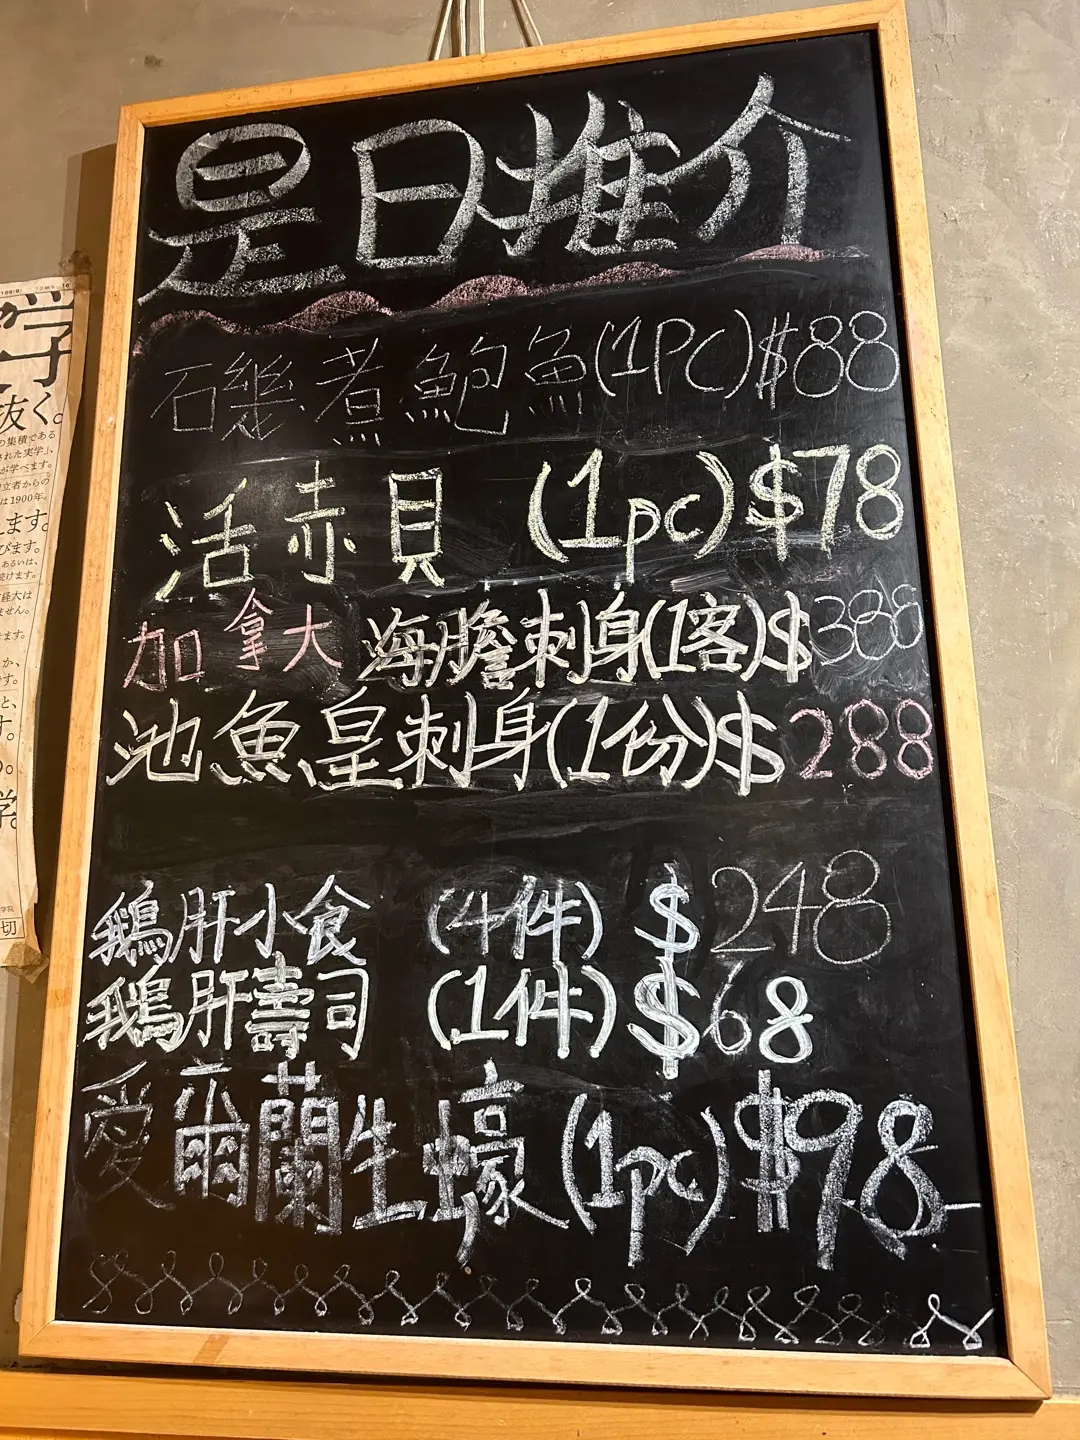 是日推介
石磯煮鮑魚(1PC)$88
活赤貝 (1pc)$78
加拿大海膽刺身(1客)$388
池魚皇刺身(1份)$288
鵝肝小食 (4件) $248
鵝肝壽司 (1件) $68
愛爾蘭生蠔(1pc)$98
学
抜く。
の集積である
された実学」、
が学べます。
は1900年。
ます。
びます。
あるいは、
続けます。
経大は
ません。
ます。
か、
す。
と、
す。
学。
切